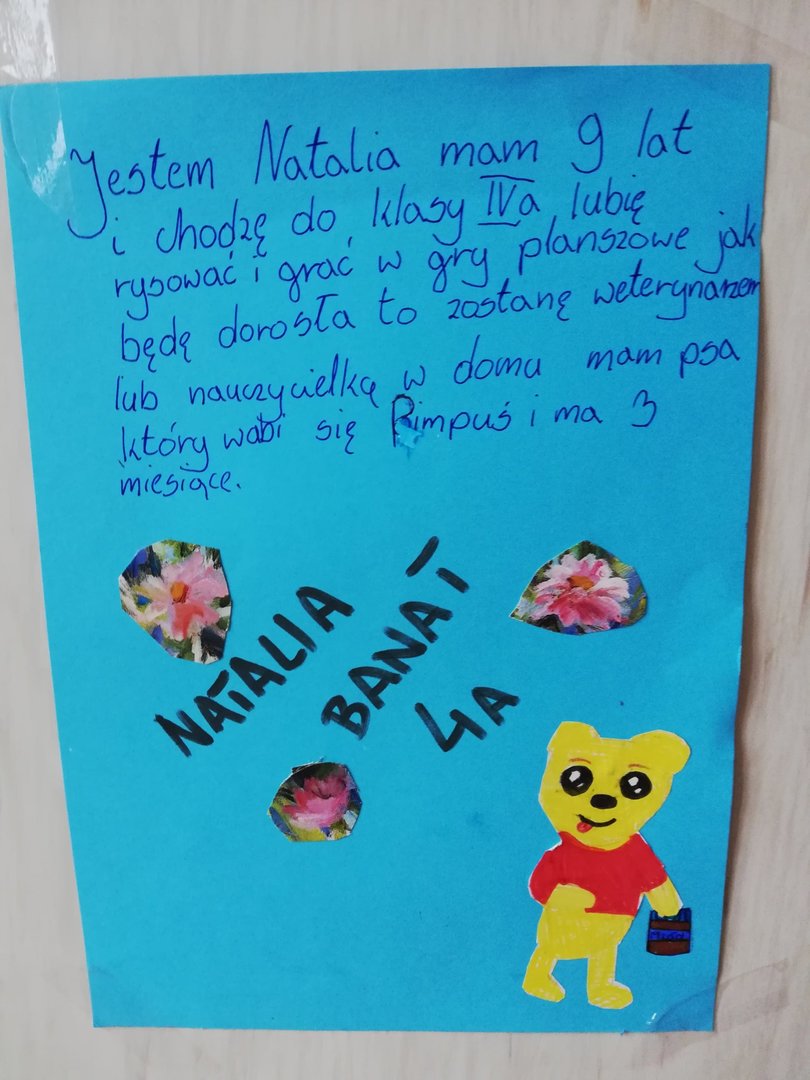 Jestem Natalia mam 9 lat
i chodzę do klasy IVa lubię
rysować i grać w gry planszowe jak
będę dorosła to zostanę weterynarzem
lub nauczycielką w domu mam psa
który wabi się Pimpuś i ma 3
miesiące.
NATALIA
BANAT
4A